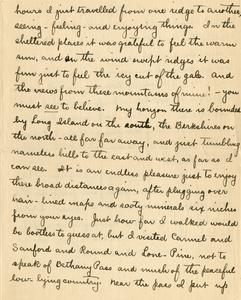 hours I just travelled from one ridge to another,
seeing - feeling - and enjoying things. In the
sheltered places it was grateful to feel the warm
sun, and on the wind swept ridges it was
fun just to feel the icy cut of the gale. And
the views from these mountains of mine! - you
must see to believe. My horizon there is bounded
by Long Island on the south, the Berkshires on
the north - all far far away, and just tumbling
nameless hills to the east and west, as far as I
can see. It is an endless pleasure just to enjoy
these broad distances again, after plugging over
hair-lined maps and sooty minerals six inches
from your eyes. Just how far I walked would
be bootless to guess at; but I visited Carmel and
Sanford and Round and Lone-Pine, not to
speak of Bethany Pass and much of the peaceful
low-lying country. Near the pass I put up